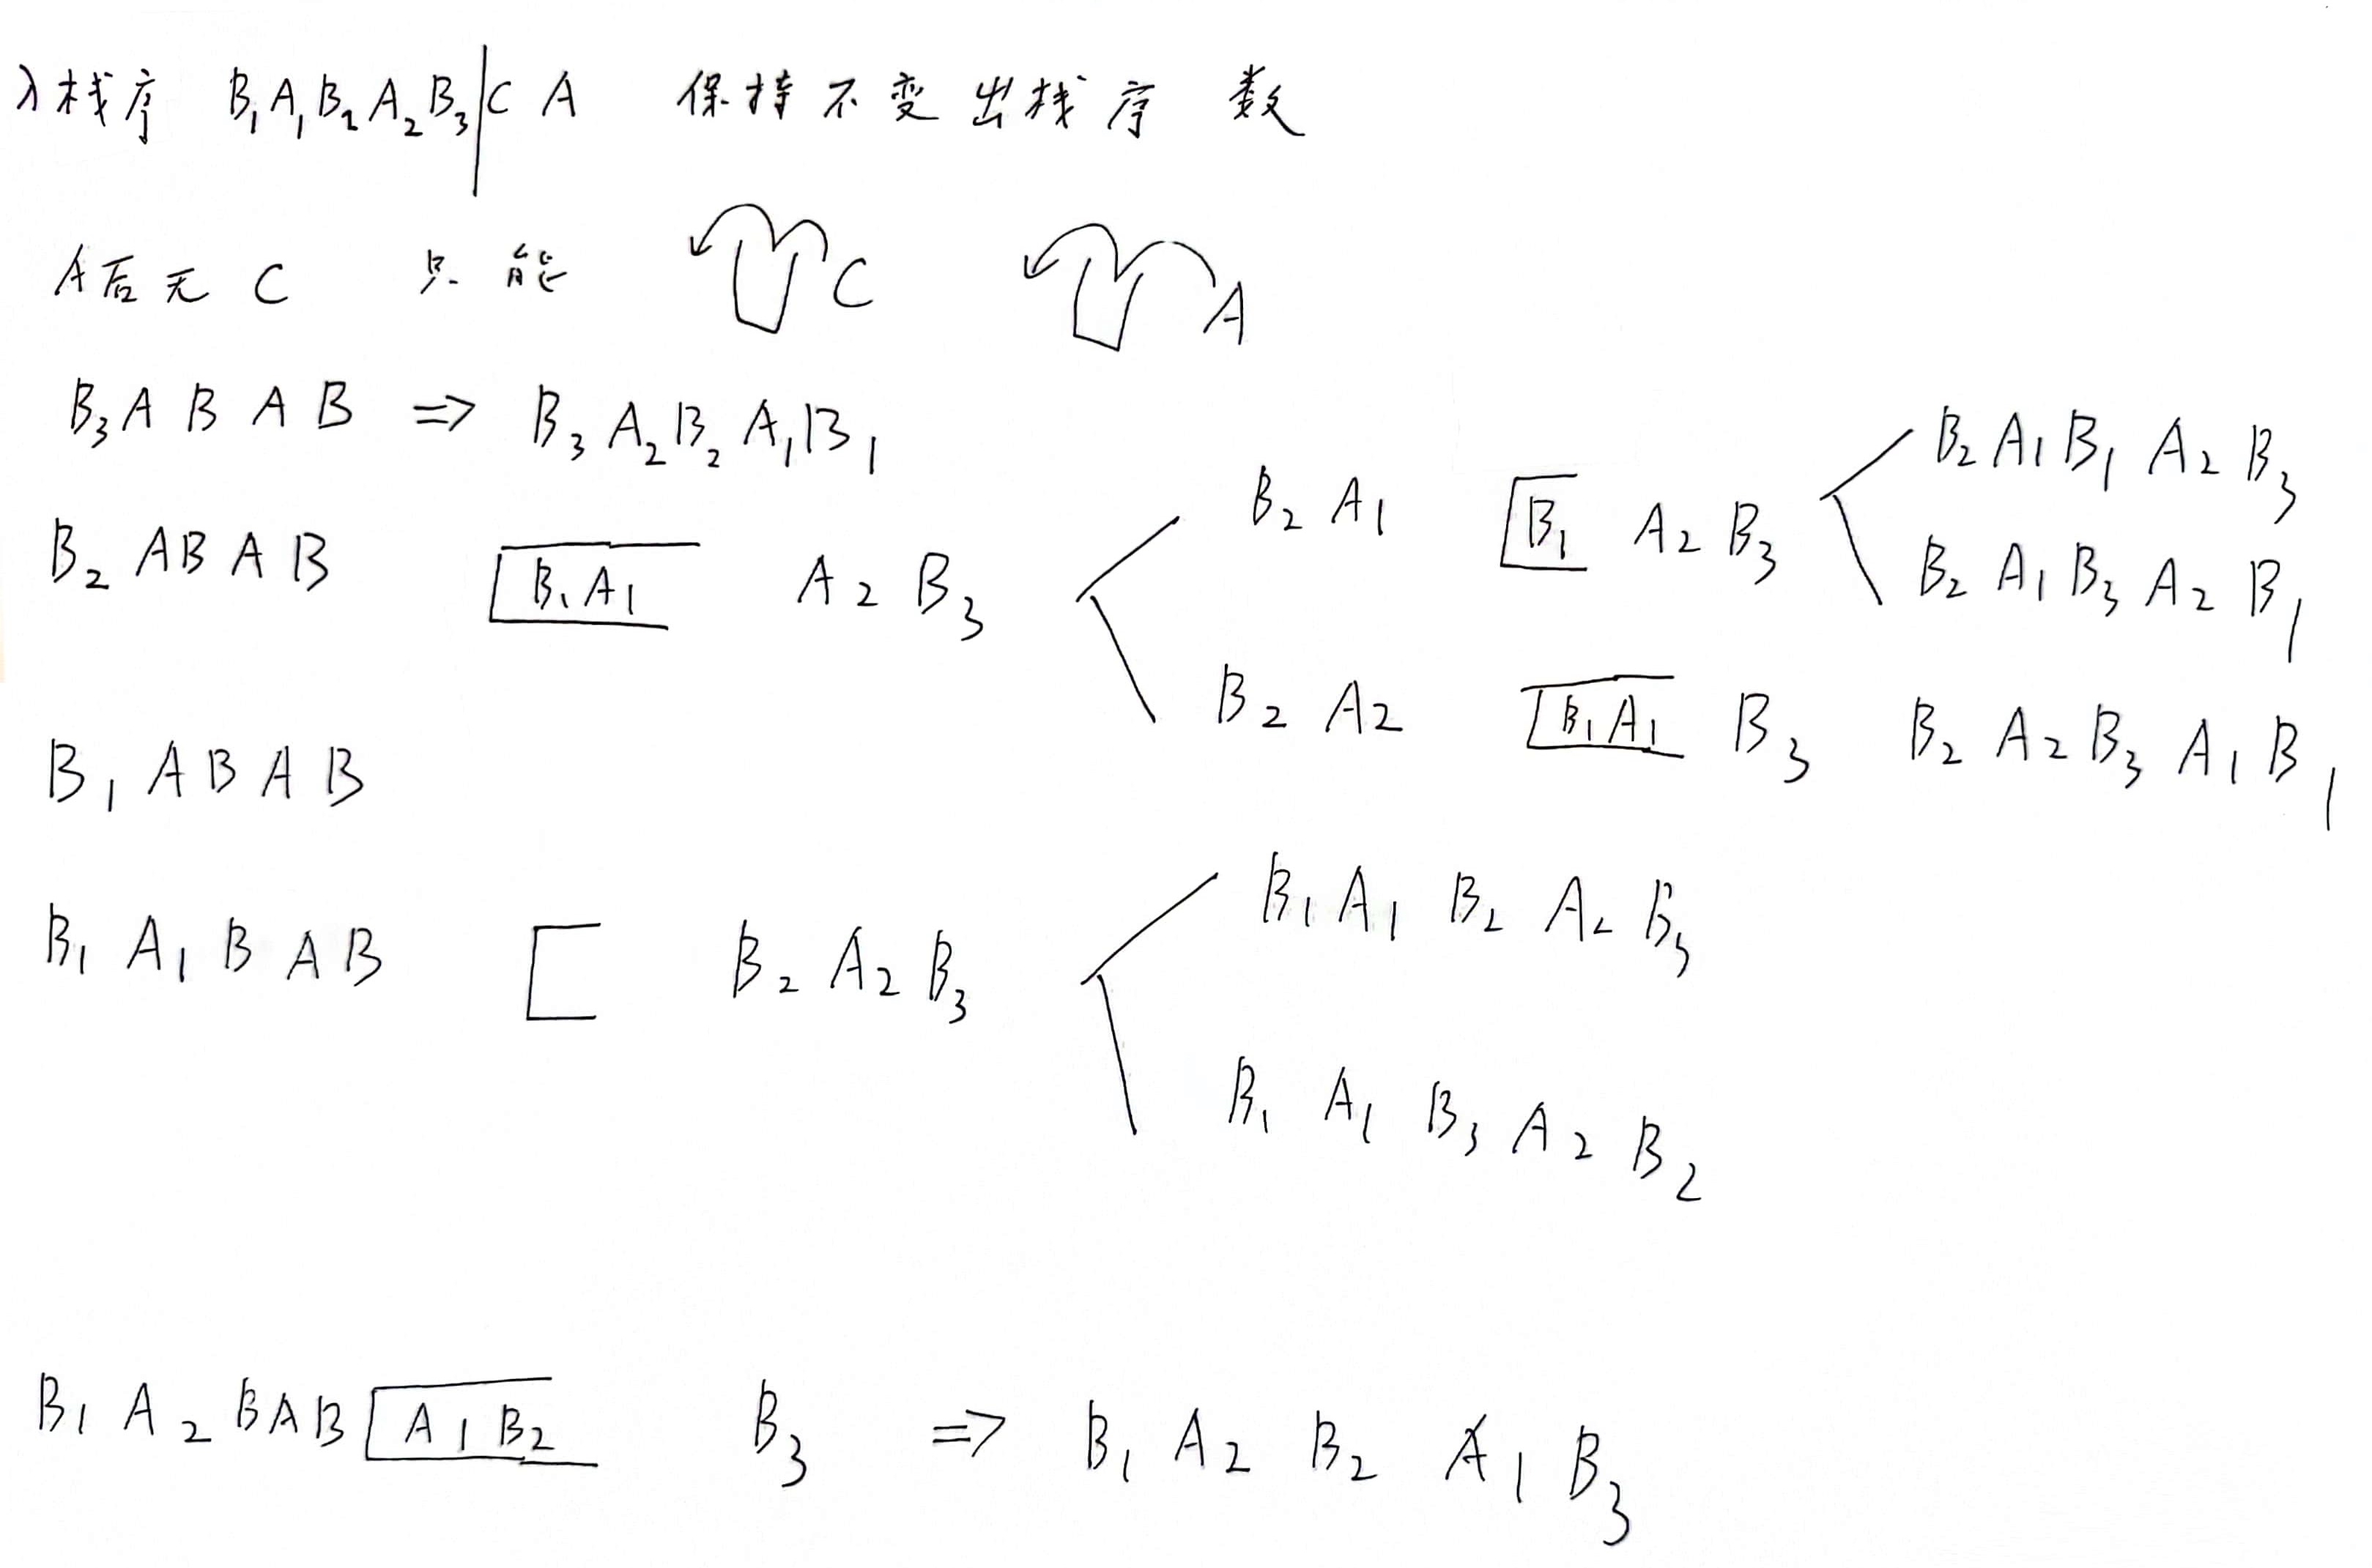 入栈序 B₁A₁B₂A₂B₃|C A 保持不变出栈序 数
A后无 C 只能 C A
B₃ A B A B => B₃ A₂ B₂ A₁ B₁
B₂ A B A B B₁ A₁ A₂ B₃
B₂ A₁ B₁ A₂ B₃
B₂ A₁ B₁ A₂ B₃
B₂ A₁ B₃ A₂ B₁
B₂ A₂ B₁ A₁ B₃ B₂ A₂ B₃ A₁ B₁
B₁ A B A B
B₁ A₁ B A B B₂ A₂ B₃
B₁ A₁ B₂ A₂ B₃
B₁ A₁ B₃ A₂ B₂
B₁ A₂ B A B A₁ B₂ B₃ => B₁ A₂ B₂ A₁ B₃